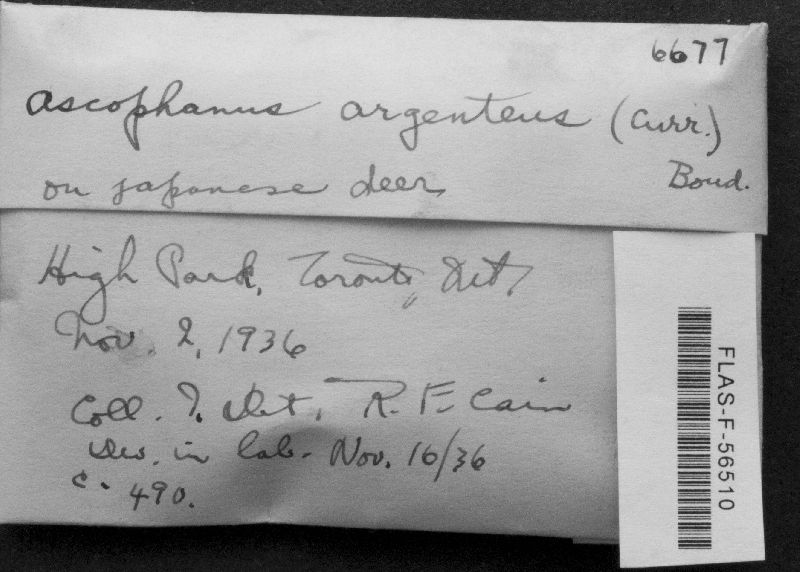 6677
Ascophanus argenteus (Curr.)
Boud.
on japanese deer
High Park, Toronto, Ont.
Nov. 2, 1936
Coll. & Det. R. F. Cain
Dev. in lab. Nov. 16/36
c. 490.
FLAS-F-56510